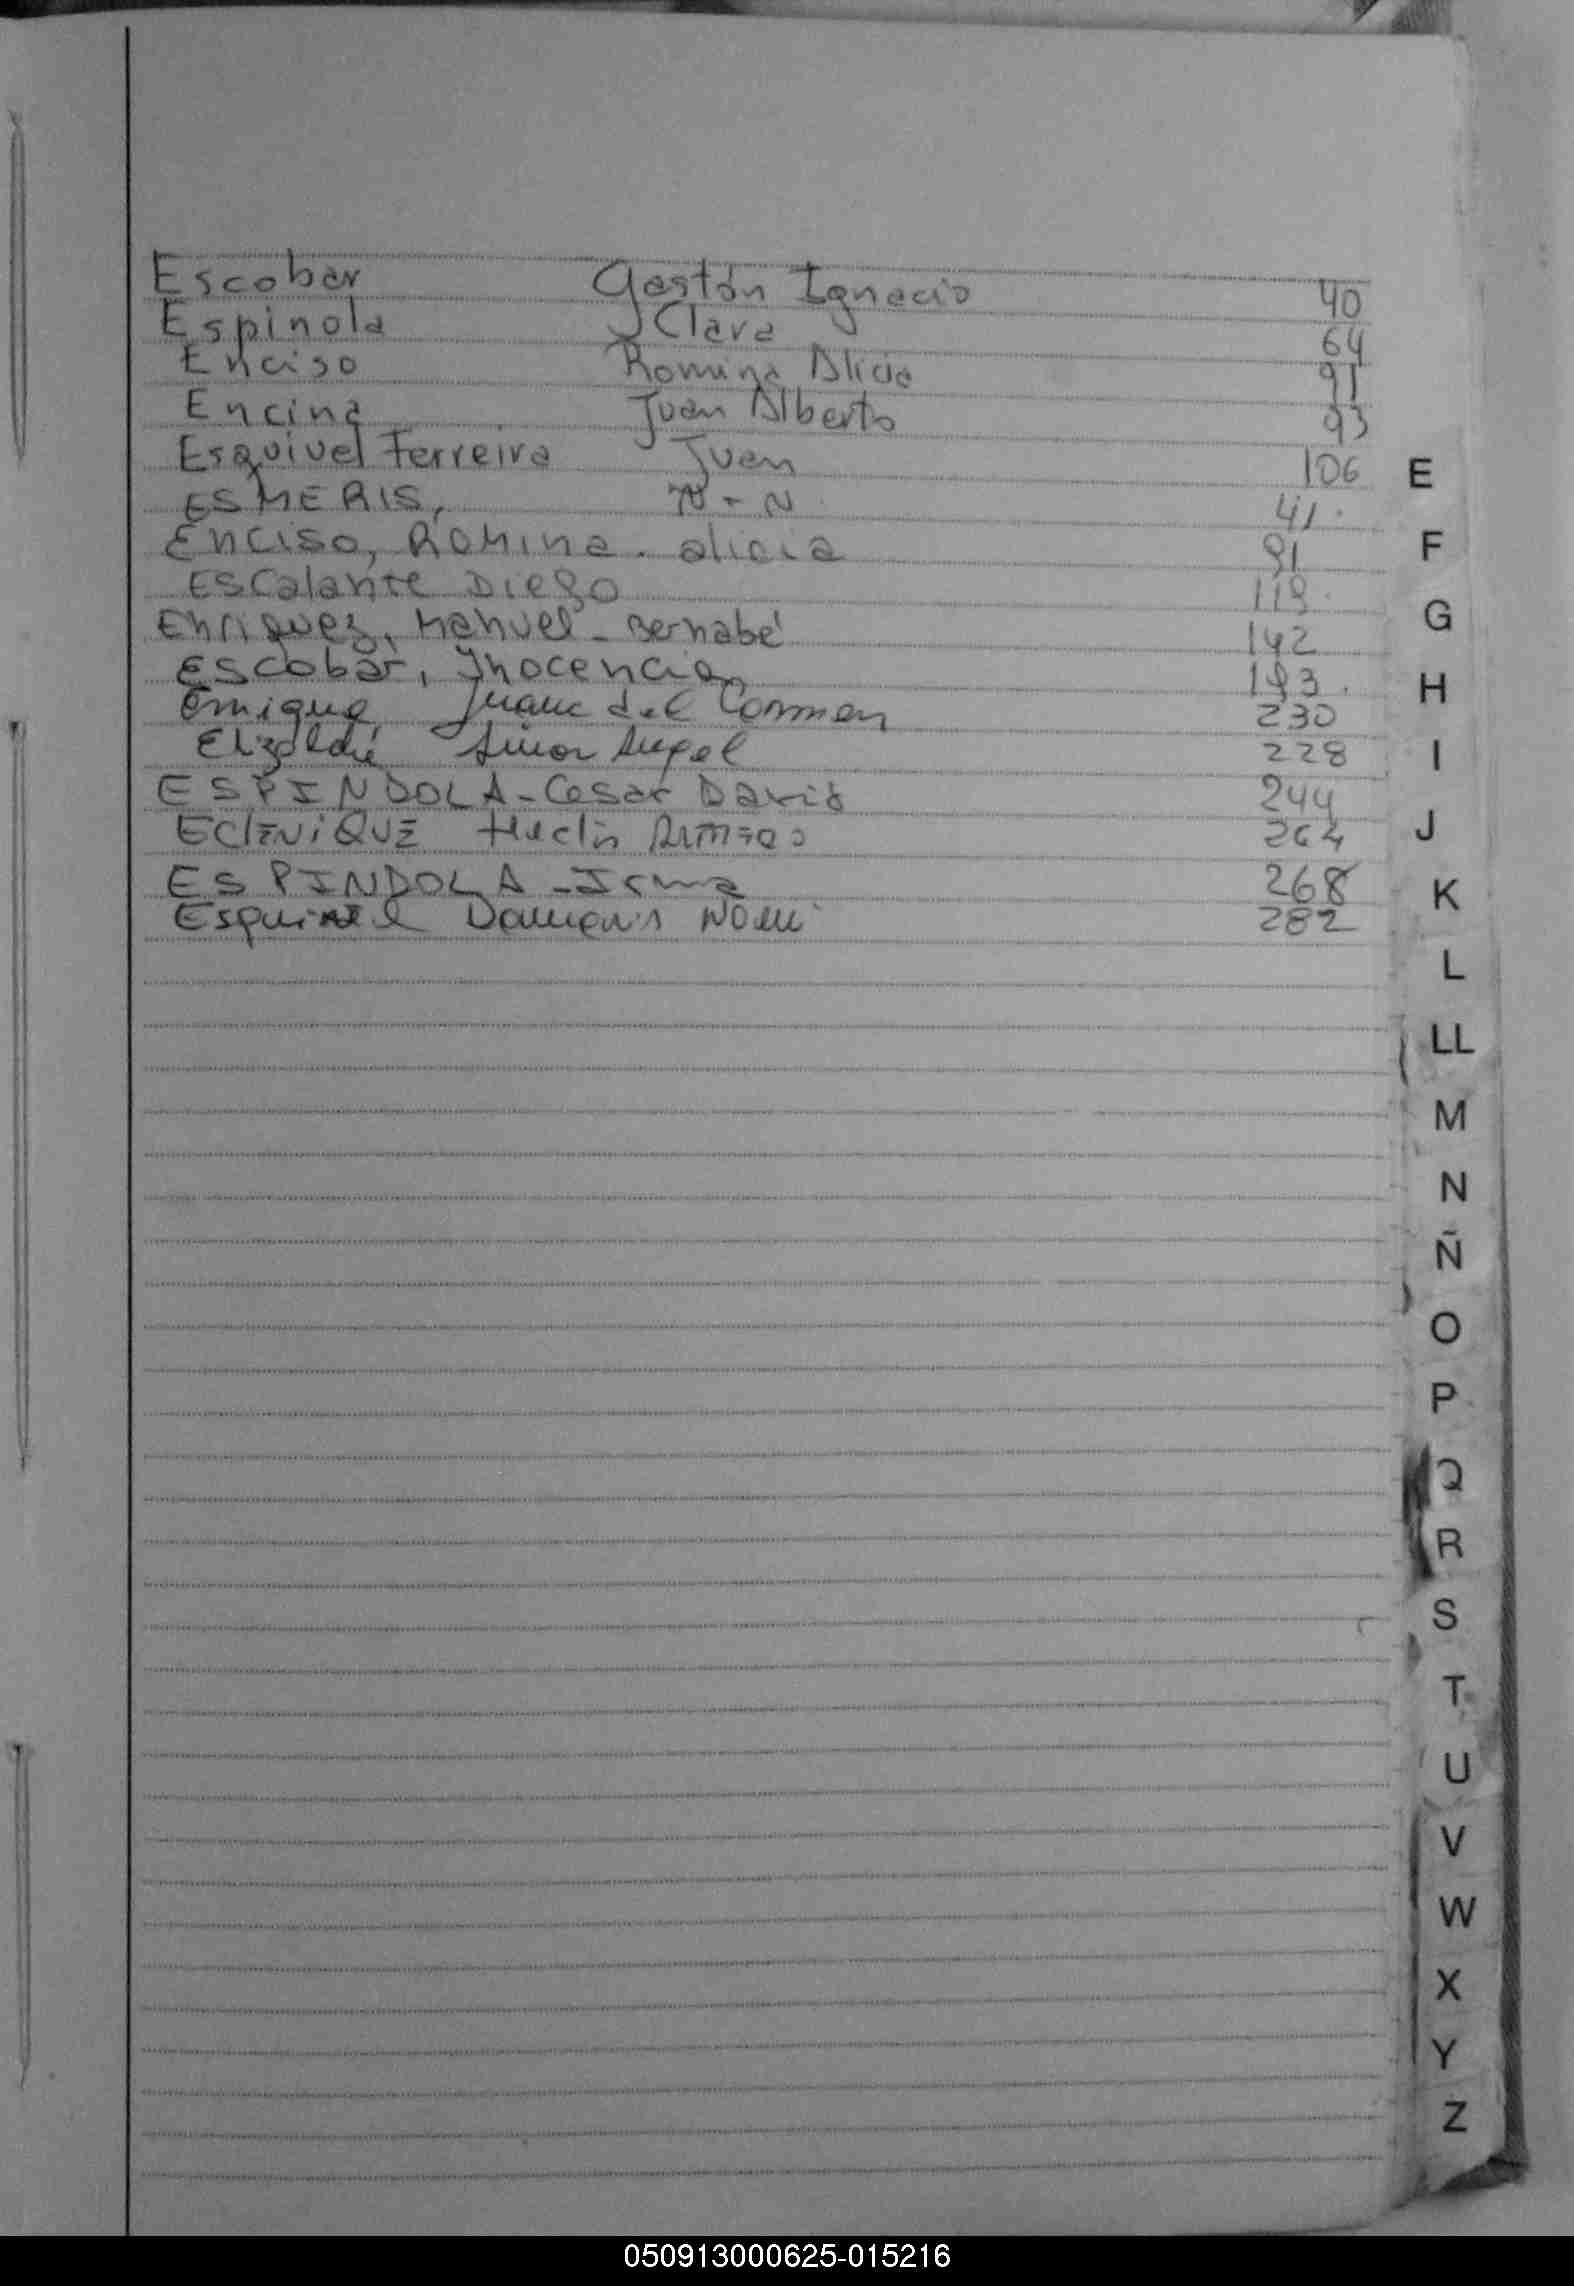 Escobar Gastón Ignacio 40
Espinola Clara 64
Enciso Romina Alicia 91
Encina Juan Alberto 93
Esquivel Ferreira Juan 106
ESMERIS, N-N 41.
Enciso, Romina. alicia 91
Escalante Diego 119.
Enriquez, Manuel-Bernabé 142
Escobar, Inocencia 193.
del Carmen 230
Angel 228
ESPINDOLA-Cesar David 244
264
ESPINDOLA-Irma 268
282
E
F
G
H
I
J
K
L
LL
M
N
Ñ
O
P
Q
R
S
T
U
V
W
X
Y
Z
050913000625-015216